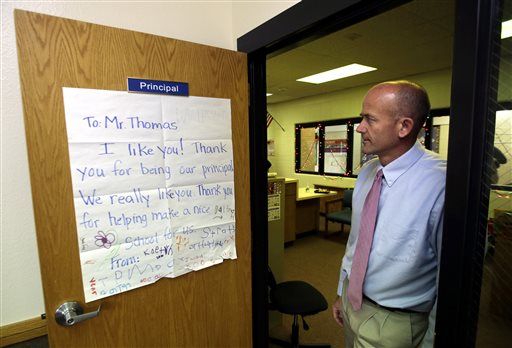 Principal
To: Mr. Thomas
I like you! Thank
you for being our principal
We really like you Thank you
for helping make a nice
School for us.
From: